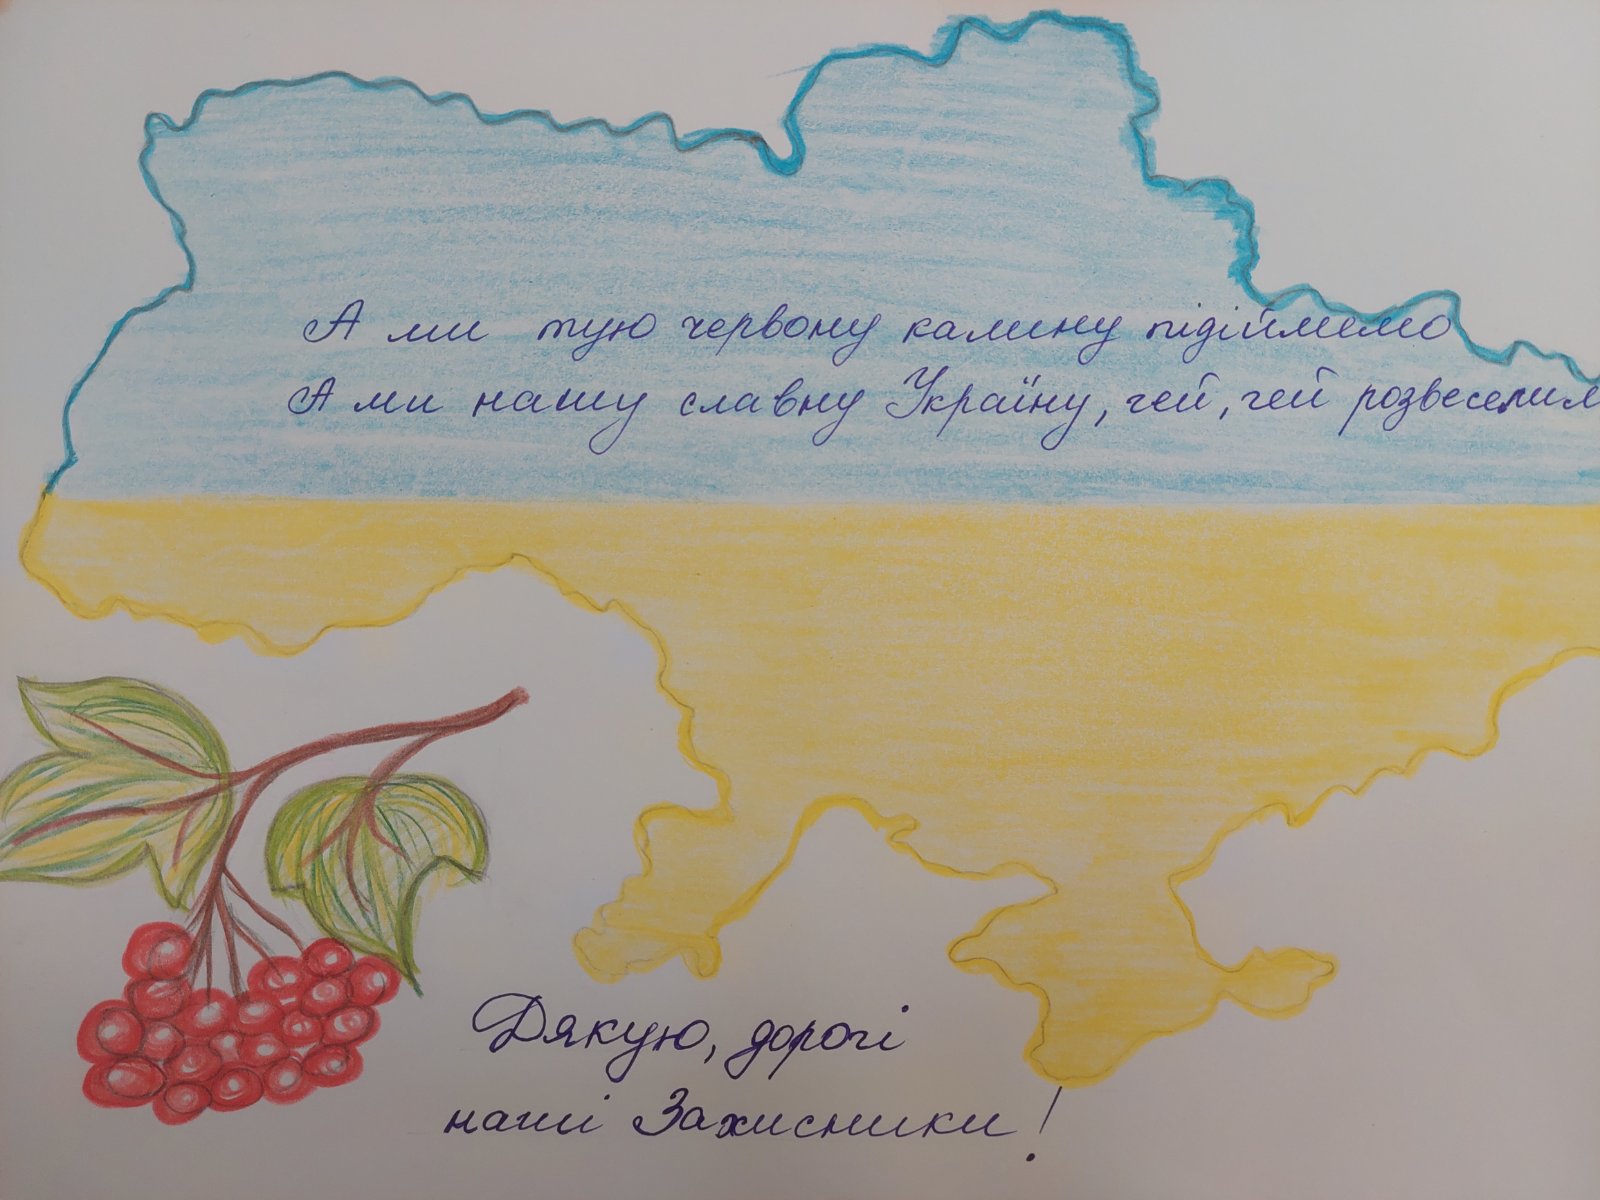 А ми тую червону калину підіймемо
А ми нашу славну Україну, гей, гей розвеселим
Дякую, дорогі
наші Захисники!